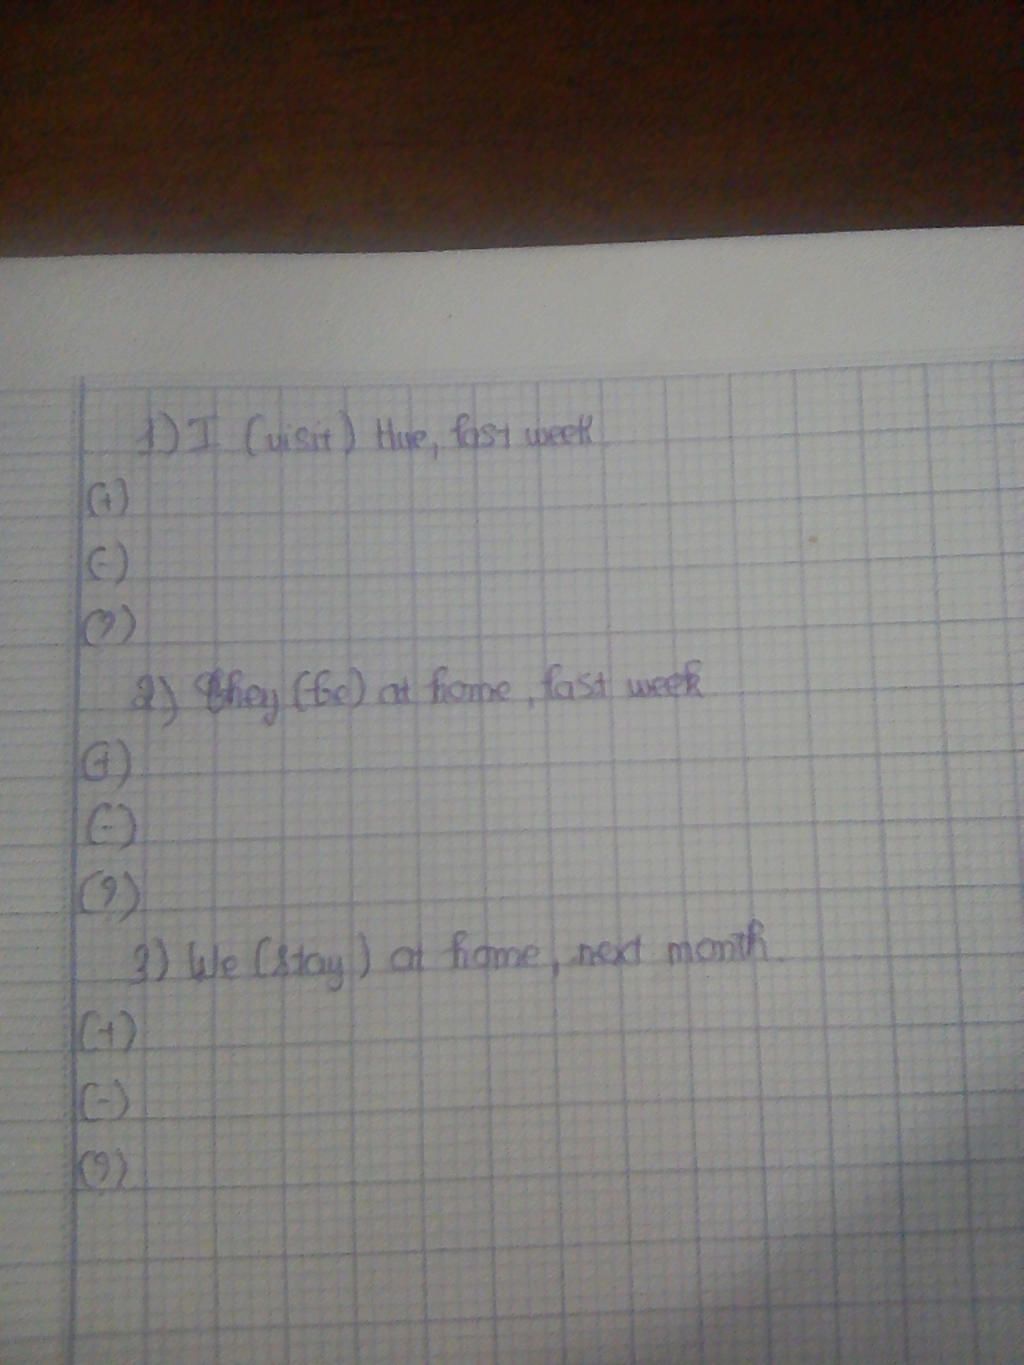 1) I (visit) Hue, last week
(+)
(-)
(?)
2) They (be) at home, last week
(+)
(-)
(?)
3) We (stay) at home, next month.
(+)
(-)
(?)